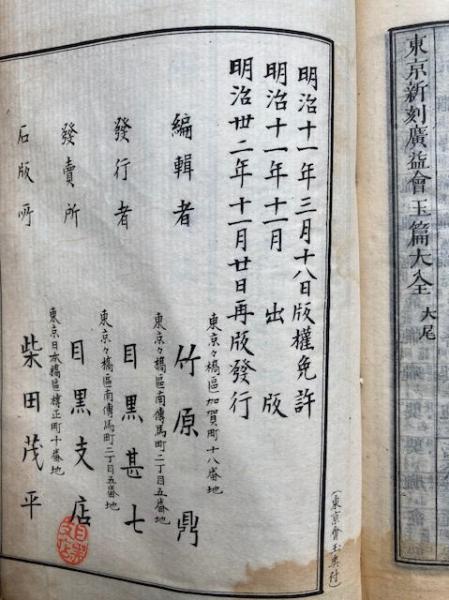 東京新刻廣益會玉篇大全 大尾
明治十一年三月十八日版權免許
明治十一年十一月 出版
明治廿二年十一月廿日再版發行
東京々橋區加賀町十八番地
編輯者 竹原鼎
東京々橋區南傳馬町二丁目五番地
發行者 目黒甚七
東京々橋區南傳馬町二丁目五番地
發賣所 目黒支店
東京日本橋區樽正町十番地
石版所 柴田茂平